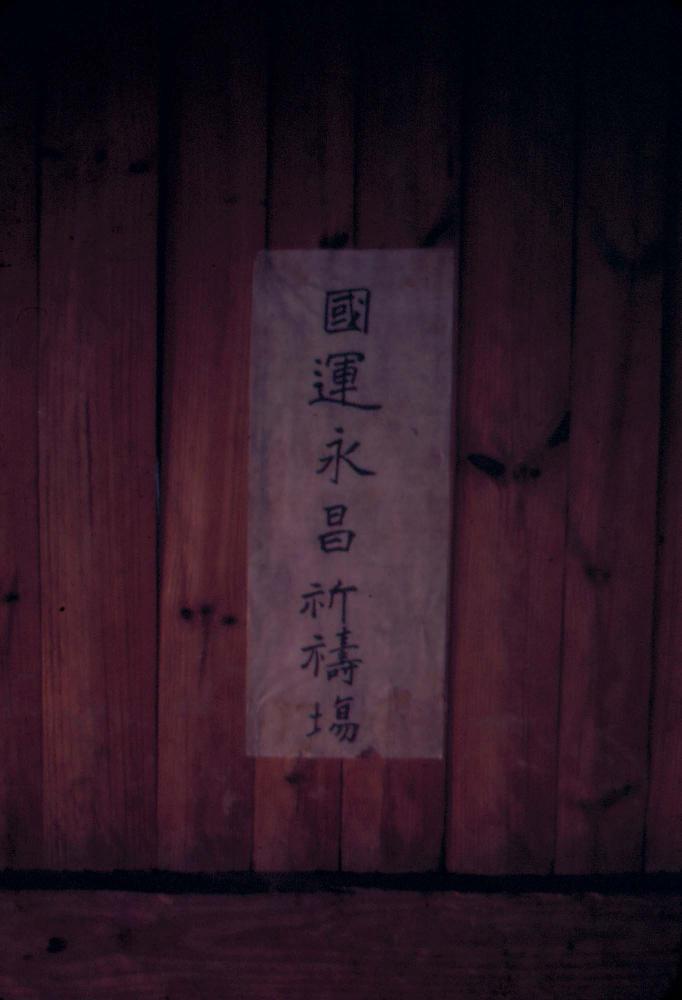 國運永昌祈禱場